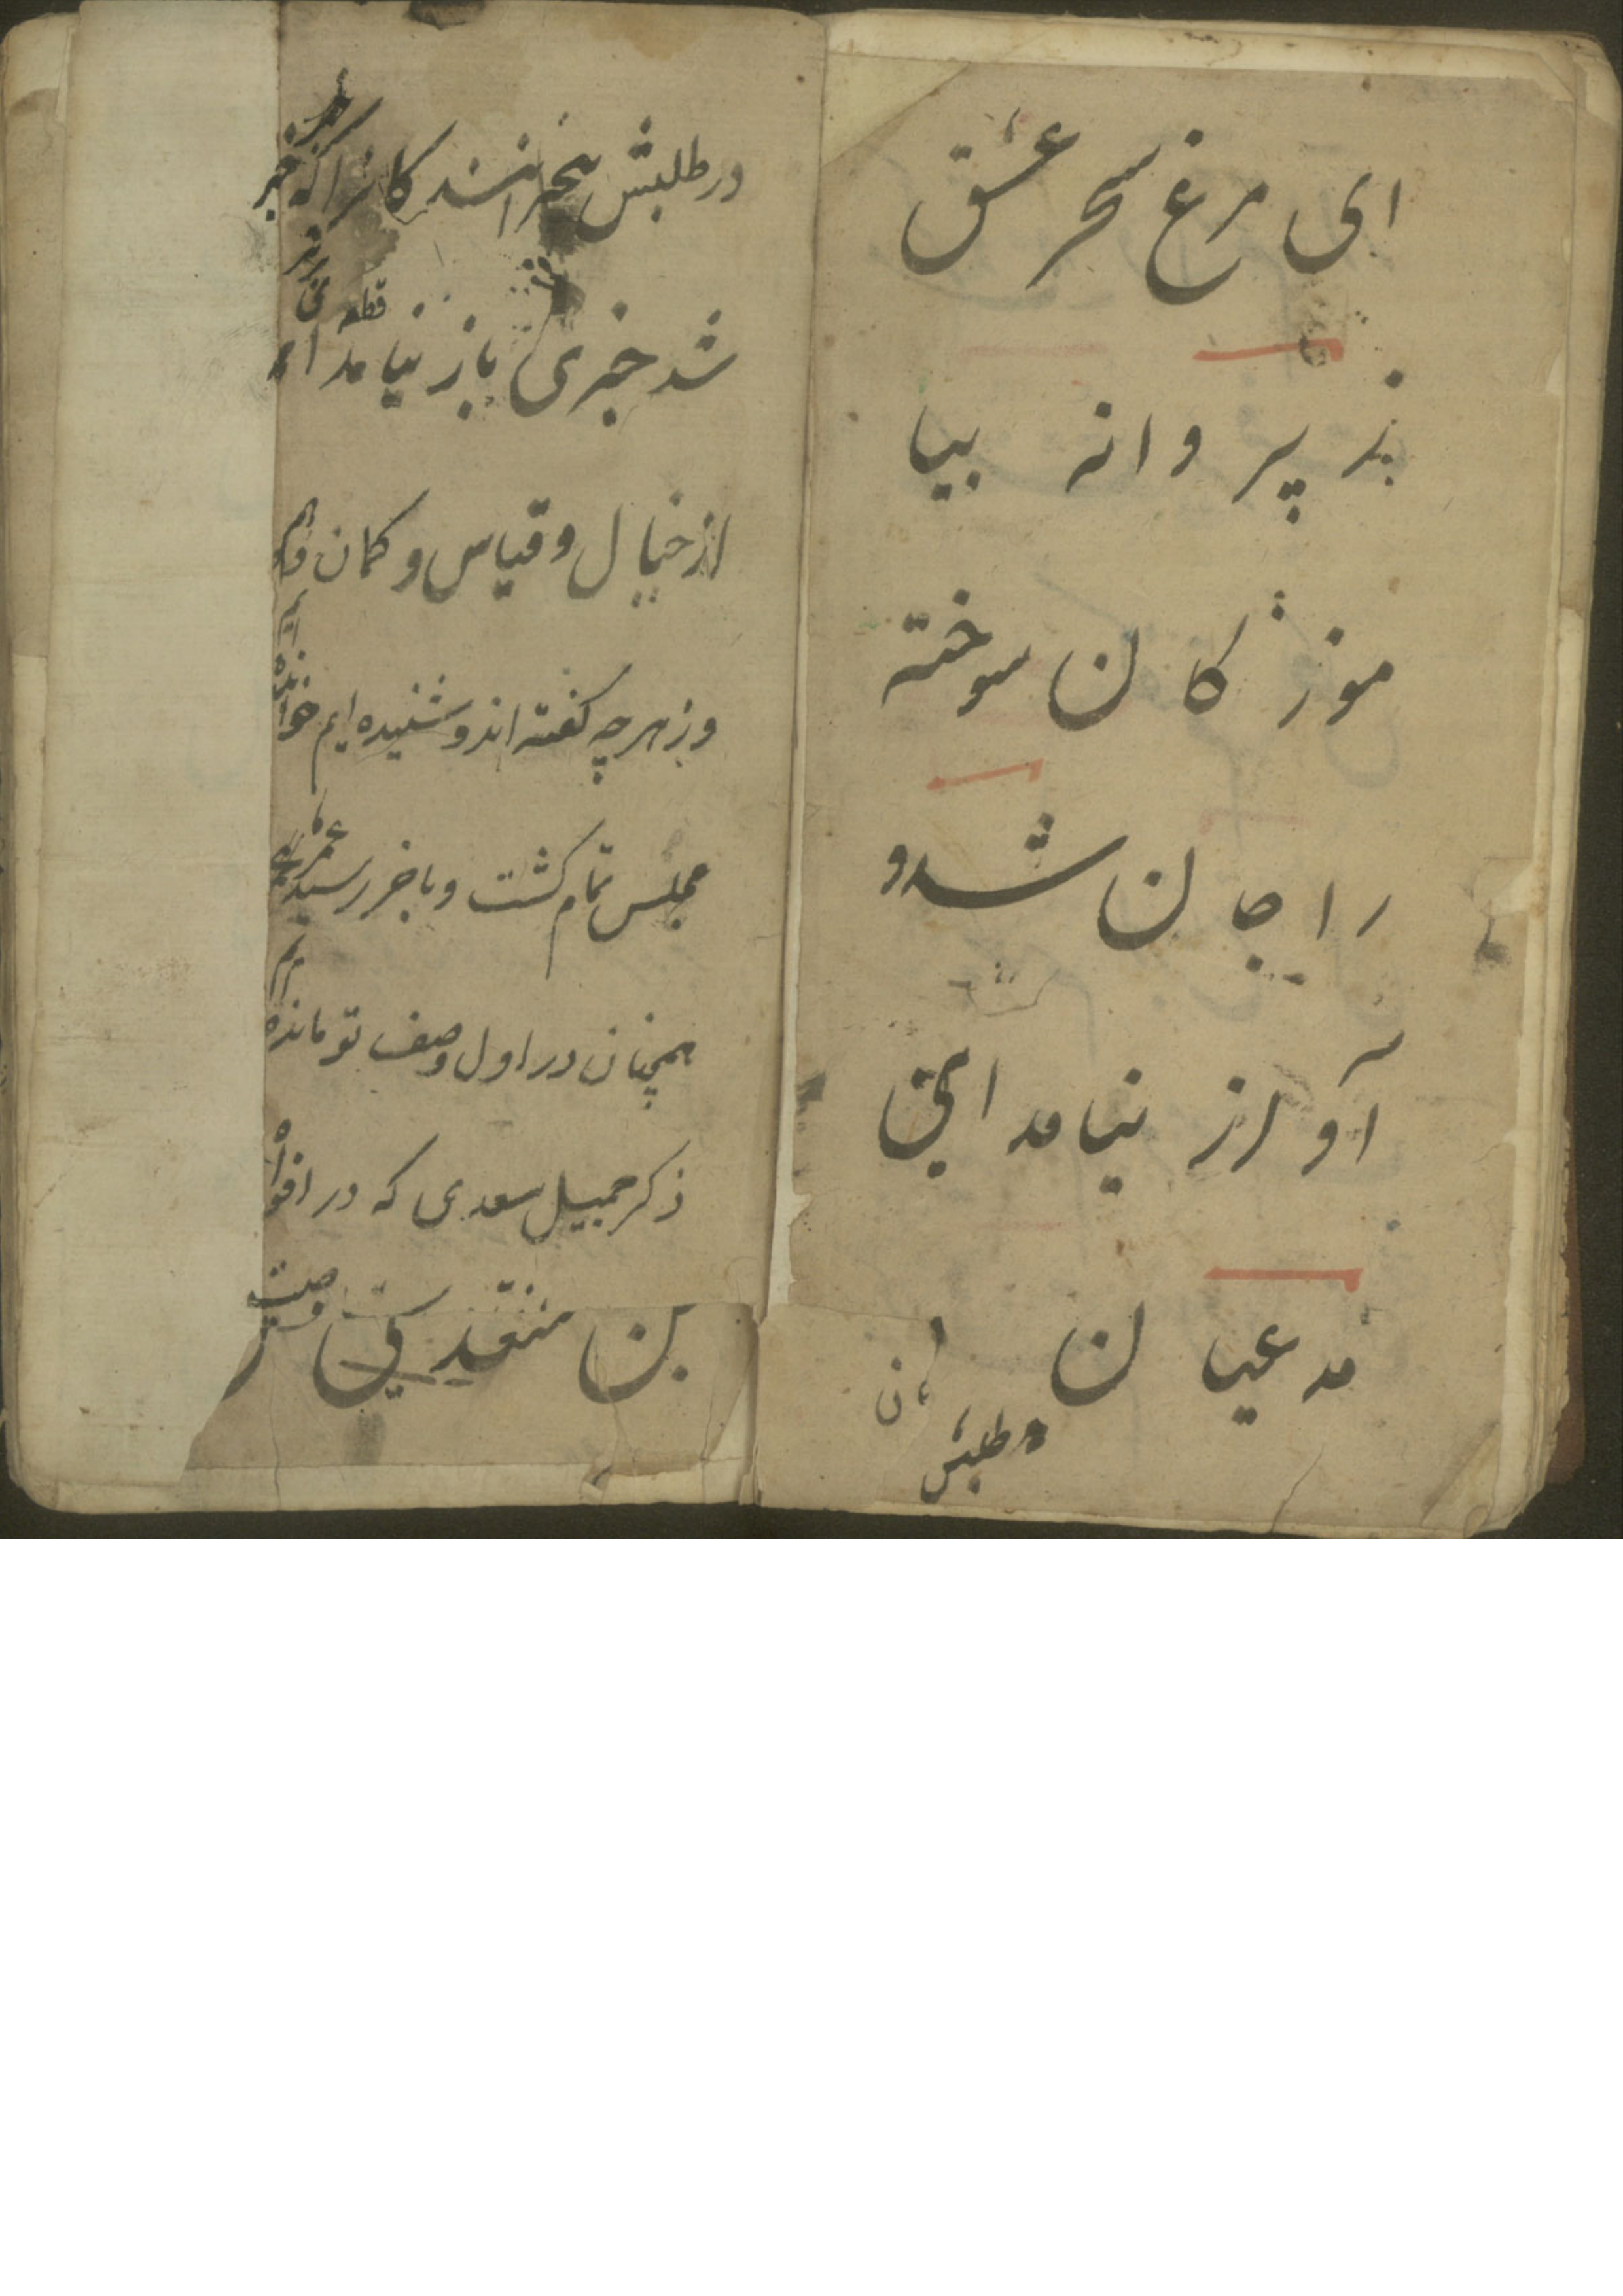 ای مرغ سحر عشق
ز پروانه بیا
موز کان سوخته
را جان شد و
آواز نیامد این
مدعیان
در طلبش
در طلبش بیخبرانند کانرا که خبر
شد خبری باز نیامد
قطعه
از خیال و قیاس و کمان
وز هر چه کفته اند و شنیده ایم خوانده
ایم
مجلس تمام کشت و باخر رسید عمر
همچنان در اول وصف تو مانده
ایم
ذکر جمیل سعدی که در افواه
وصیت